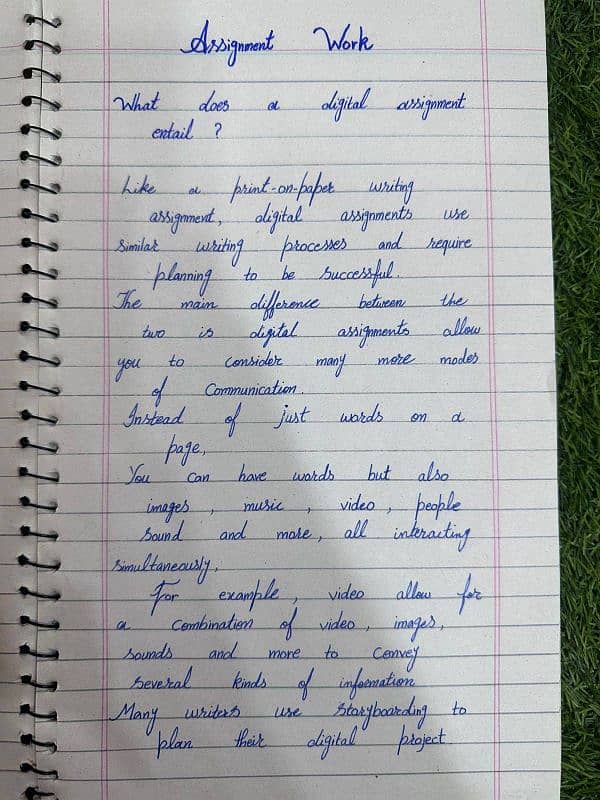 Assignment Work
What does a digital assignment
entail ?
Like a print-on-paper writing
assignment, digital assignments use
similar writing processes and require
planning to be successful.
The main difference between the
two is digital assignments allow
you to consider many more modes
of Communication.
Instead of just words on a
page,
You can have words but also
images , music , video , people
sound and more, all interacting
simultaneously,
For example , video allow for
a combination of video , images,
sounds and more to convey
several kinds of information
Many writers use storyboarding to
plan their digital project.